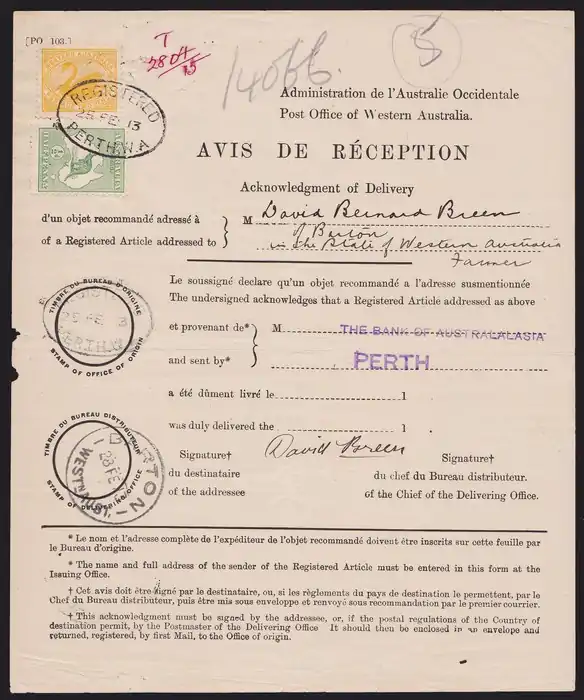 [PO 103.]
T
28 04/15
1406b.
5
REGISTERED
25 FE 13
PERTH.W.A
Administration de l'Australie Occidentale
Post Office of Western Australia.
AVIS DE RÉCEPTION
Acknowledgment of Delivery
d'un objet recommandé adressé à
of a Registered Article addressed to
M David Bernard Breen
of Barton
in the State of Western Australia
Farmer
Le soussigné declare qu'un objet recommandé a l'adresse susmentionnée
The undersigned acknowledges that a Registered Article addressed as above
et provenant de*
and sent by*
M THE BANK OF AUSTRALALASIA
PERTH
TIMBRE DU BUREAU D'ORIGINE
25 FE 13
PERTH.W.A
STAMP OF OFFICE OF ORIGIN
a été dûment livré le 1
was duly delivered the 1
TIMBRE DU BUREAU DISTRIBUTEUR
BARTON
28 FE
WESTN AUST.
STAMP OF DELIVERING OFFICE
David Breen
Signature†
du destinataire
of the addressee
Signature†
du chef du Bureau distributeur.
of the Chief of the Delivering Office.
* Le nom et l'adresse complète de l'expéditeur de l'objet recommandé doivent être inscrits sur cette feuille par
le Bureau d'origine.
* The name and full address of the sender of the Registered Article must be entered in this form at the
Issuing Office.
† Cet avis doit être signé par le destinataire, ou, si les règlements du pays de destination le permettent, par le
Chef du Bureau distributeur, puis être mis sous enveloppe et renvoyé sous recommandation par le premier courrier.
† This acknowledgment must be signed by the addressee, or, if the postal regulations of the Country of
destination permit, by the Postmaster of the Delivering Office It should then be enclosed in an envelope and
returned, registered, by first Mail, to the Office of origin.